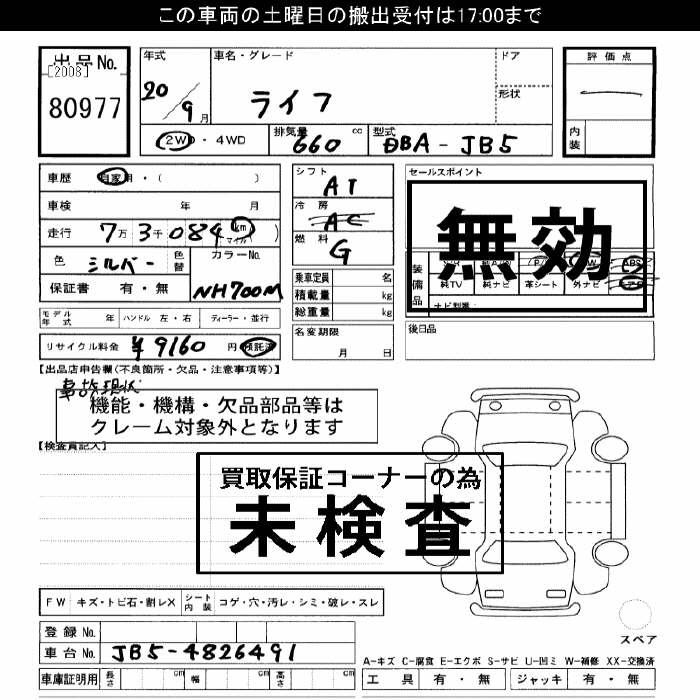 この車両の土曜日の搬出受付は17:00まで
出品No. [2008] 80977
年式 20/9月
車名・グレード ライフ
ドア
形状
評価点
内装
2WD・4WD
排気量 660 cc
型式 DBA-JB5
車歴 自家用・( )
車検 年 月
走行 7万3千084 km マイル
色 シルバー 色替
カラーNo. NH700M
保証書 有・無
シフト AT
冷房 AC
燃料 G
乗車定員 名
積載量 kg
総重量 kg
セールスポイント
無効
装備品
純TV 純ナビ 革シート 外ナビ
ナビ型番:
モデル年式 年 ハンドル 左・右 ディーラー・並行
名変期限 月 日
後日品
リサイクル料金 ¥9160円 預託済
【出品店申告欄(不良箇所・欠品・注意事項等)】
事故現状
機能・機構・欠品部品等は
クレーム対象外となります
【検査員記入】
買取保証コーナーの為
未検査
FW キズ・トビ石・割レX シート内装 コゲ・穴・汚レ・シミ・破レ・スレ
スペア
登録No.
車台No. JB5-4826491
車庫証明用 長さ cm 幅 cm 高さ cm
A-キズ C-腐食 E-エクボ S-サビ U-凹ミ W-補修 XX-交換済
工具 有・無 ジャッキ 有・無